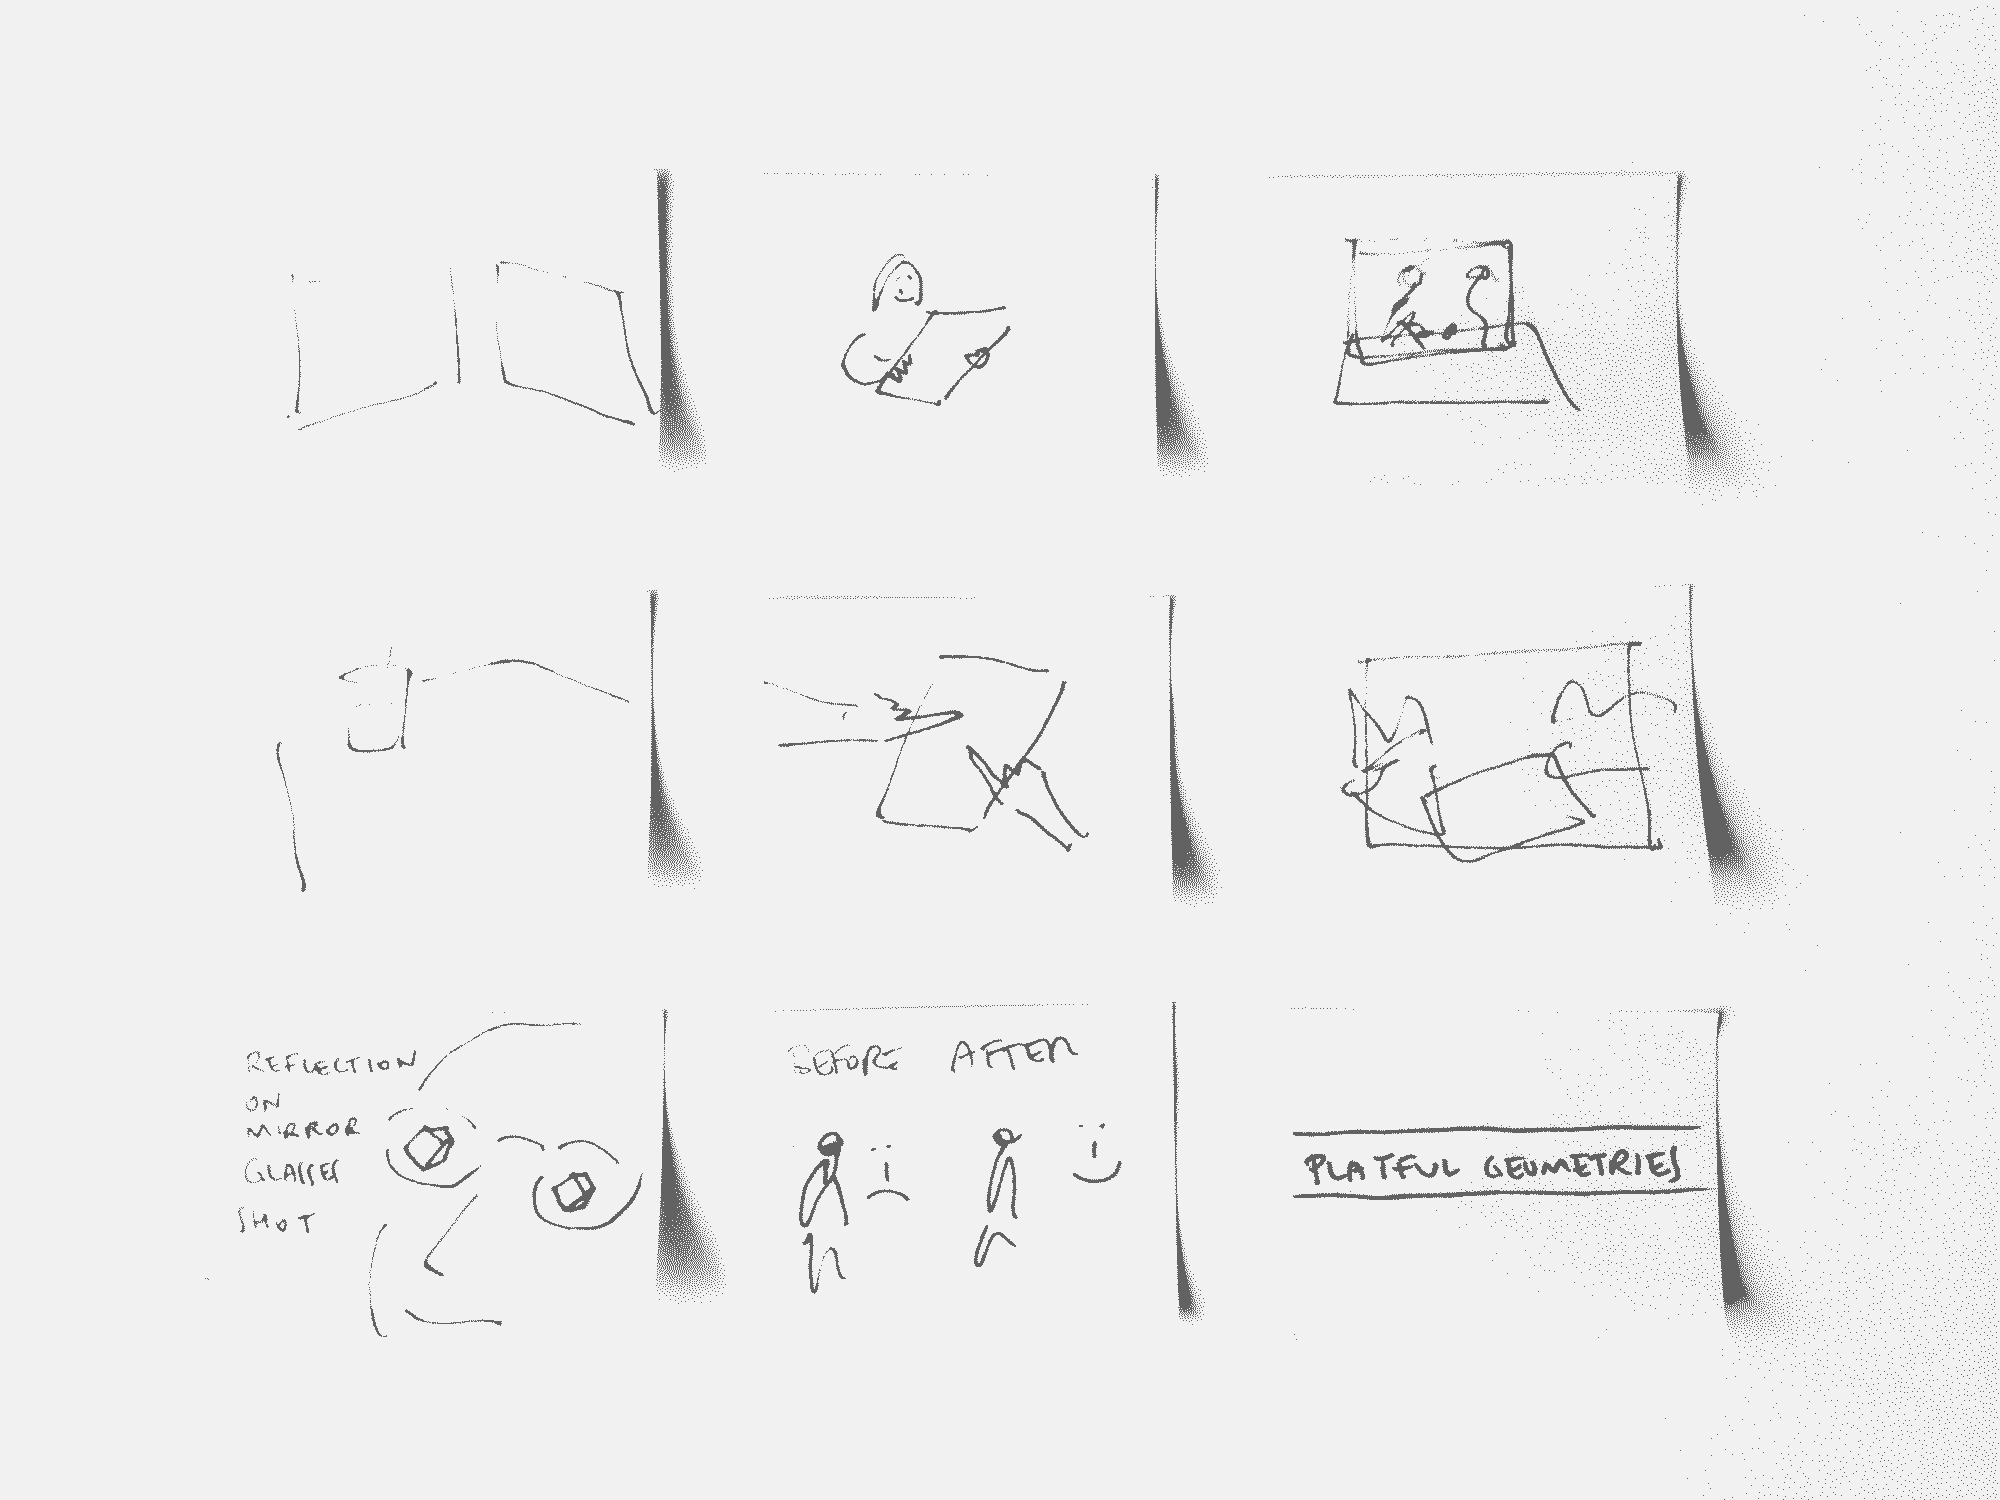 REFLECTION
ON
MIRROR
GLASSES
SHOT
BEFORE AFTER
PLAYFUL GEOMETRIES